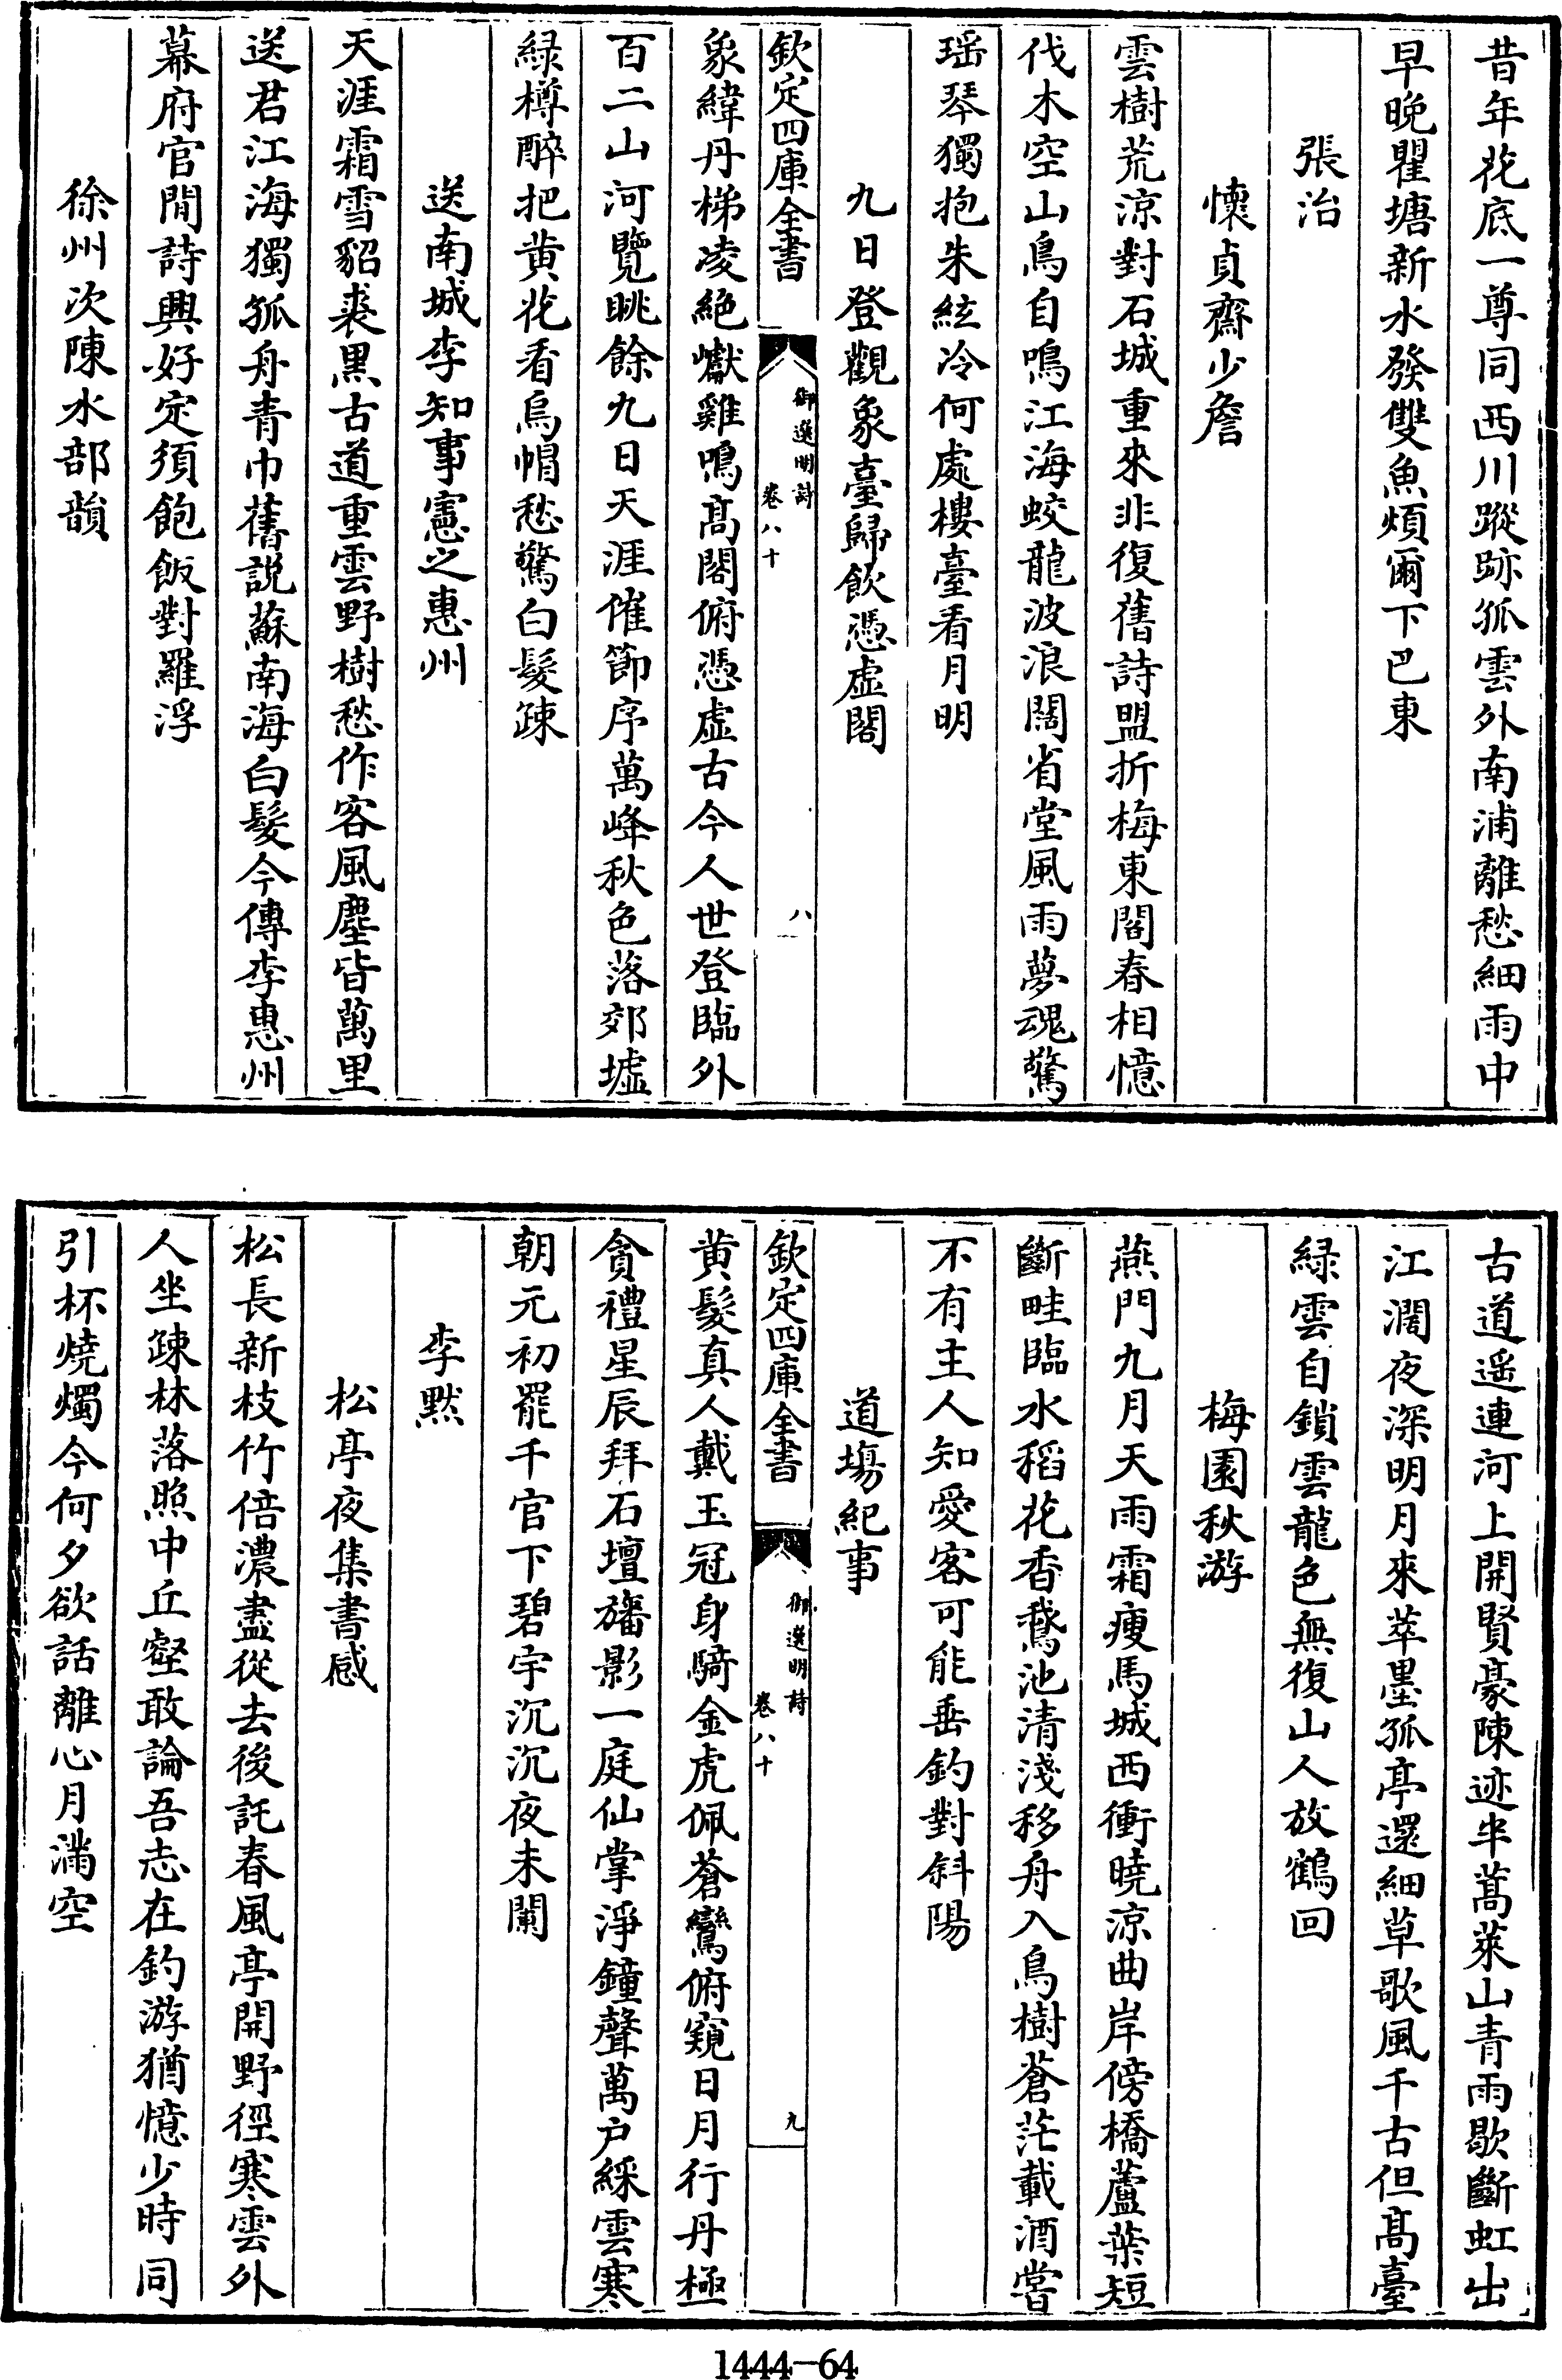 昔年花底一尊同西川蹤跡孤雲外南浦離愁細雨中
早晚瞿塘新水發雙魚煩爾下巴東
張治
懷貞齋少詹
雲樹荒涼對石城重來非復舊詩盟折梅東閣春相憶
伐木空山鳥自鳴江海蛟龍波浪闊省堂風雨夢魂驚
瑶琴獨抱朱絃冷何處樓臺看月明
九日登觀象臺歸飲憑虛閣
欽定四庫全書
御選明詩
卷八十
八
象緯丹梯凌絶巘雞鳴髙閣俯憑虛古今人世登臨外
百二山河覽眺餘九日天涯催節序萬峰秋色落郊墟
緑樽醉把黄花看烏帽愁驚白髮疎
送南城李知事憲之惠州
天涯霜雪貂裘黑古道重雲野樹愁作客風塵皆萬里
送君江海獨孤舟青巾舊説蘇南海白髮今傳李惠州
幕府官閒詩興好定須飽飯對羅浮
徐州次陳水部韻
古道遥連河上開賢豪陳迹半蒿萊山青雨歇斷虹出
江濶夜深明月來萃墨孤亭還細草歌風千古但髙臺
緑雲自鎖雲龍色無復山人放鶴回
梅園秋游
燕門九月天雨霜瘦馬城西衝曉涼曲岸傍橋蘆葉短
斷畦臨水稻花香鵞池清淺移舟入鳥樹蒼茫載酒嘗
不有主人知愛客可能垂釣對斜陽
道場紀事
欽定四庫全書
御選明詩
卷八十
九
黄髮真人戴玉冠身騎金虎佩蒼鸞俯窺日月行丹極
貪禮星辰拜石壇旛影一庭仙掌淨鐘聲萬户綵雲寒
朝元初罷千官下碧宇沉沉夜未闌
李默
松亭夜集書感
松長新枝竹倍濃盡從去後託春風亭開野徑寒雲外
人坐疎林落照中丘壑敢論吾志在釣游猶憶少時同
引杯燒燭今何夕欲話離心月滿空
1444-64